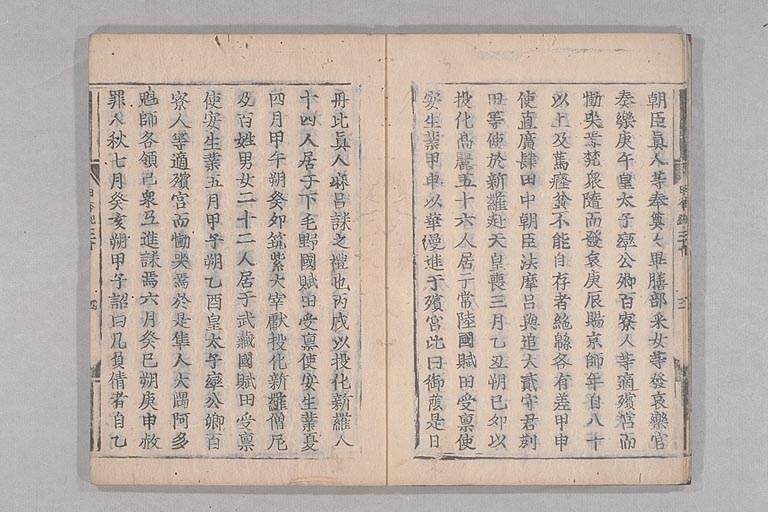 朝臣眞人等奉奠々畢膳部采女等發哀樂官
奏樂庚午皇太子率公卿百寮人等適殯宮而
慟哭焉梵衆隨而發哀庚辰賜京師年自八十
以上及篤癃貧不能自存者絁綿各有差甲申
使直廣肆田中朝臣法摩呂與追大貳守君苅
田等使於新羅赴天皇喪三月乙丑朔己卯以
投化高麗五十六人居于常陸國賦田受稟使
安生業甲申以華縵進于殯宮此曰御蔭是日
丹比眞人麻呂誄之禮也丙戌以投化新羅人
十四人居于下毛野國賦田受稟使安生業夏
四月甲午朔癸卯筑紫大宰獻投化新羅僧尼
及百姓男女二十二人居于武藏國賦田受稟
使安生業五月甲子朔乙酉皇太子率公卿百
寮人等適殯宮而慟哭焉於是隼人大隅阿多
魁師各領己衆互進誄焉六月癸巳朔庚申赦
罪人秋七月癸亥朔甲子詔曰凡負債者自乙